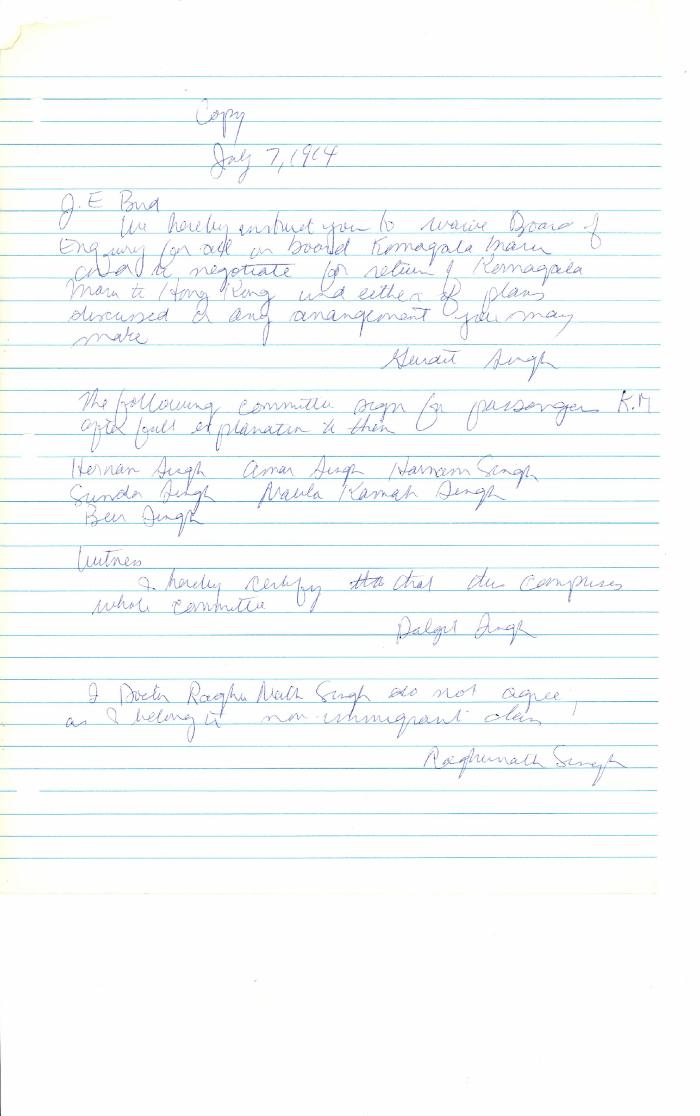 Copy
July 7, 1914
J. E Bird
We hereby instruct you to waive Board of
Enquiry for all on board Komagata Maru
and to negotiate for return of Komagata
Maru to Hong Kong und either of plans
discussed or any arrangement you may
make
Gurdit Singh
The following committee sign for passengers K.M
after full explanation to them
Hernan Singh Amar Singh Harnam Singh
Sunda Singh Singh
Beir Singh
Witness
I hereby certify that this comprises
whole committee
Daljit Singh
I Doctor Raghu Nath Singh do not agree,
as I belong to non-immigrant class
Raghunath Singh